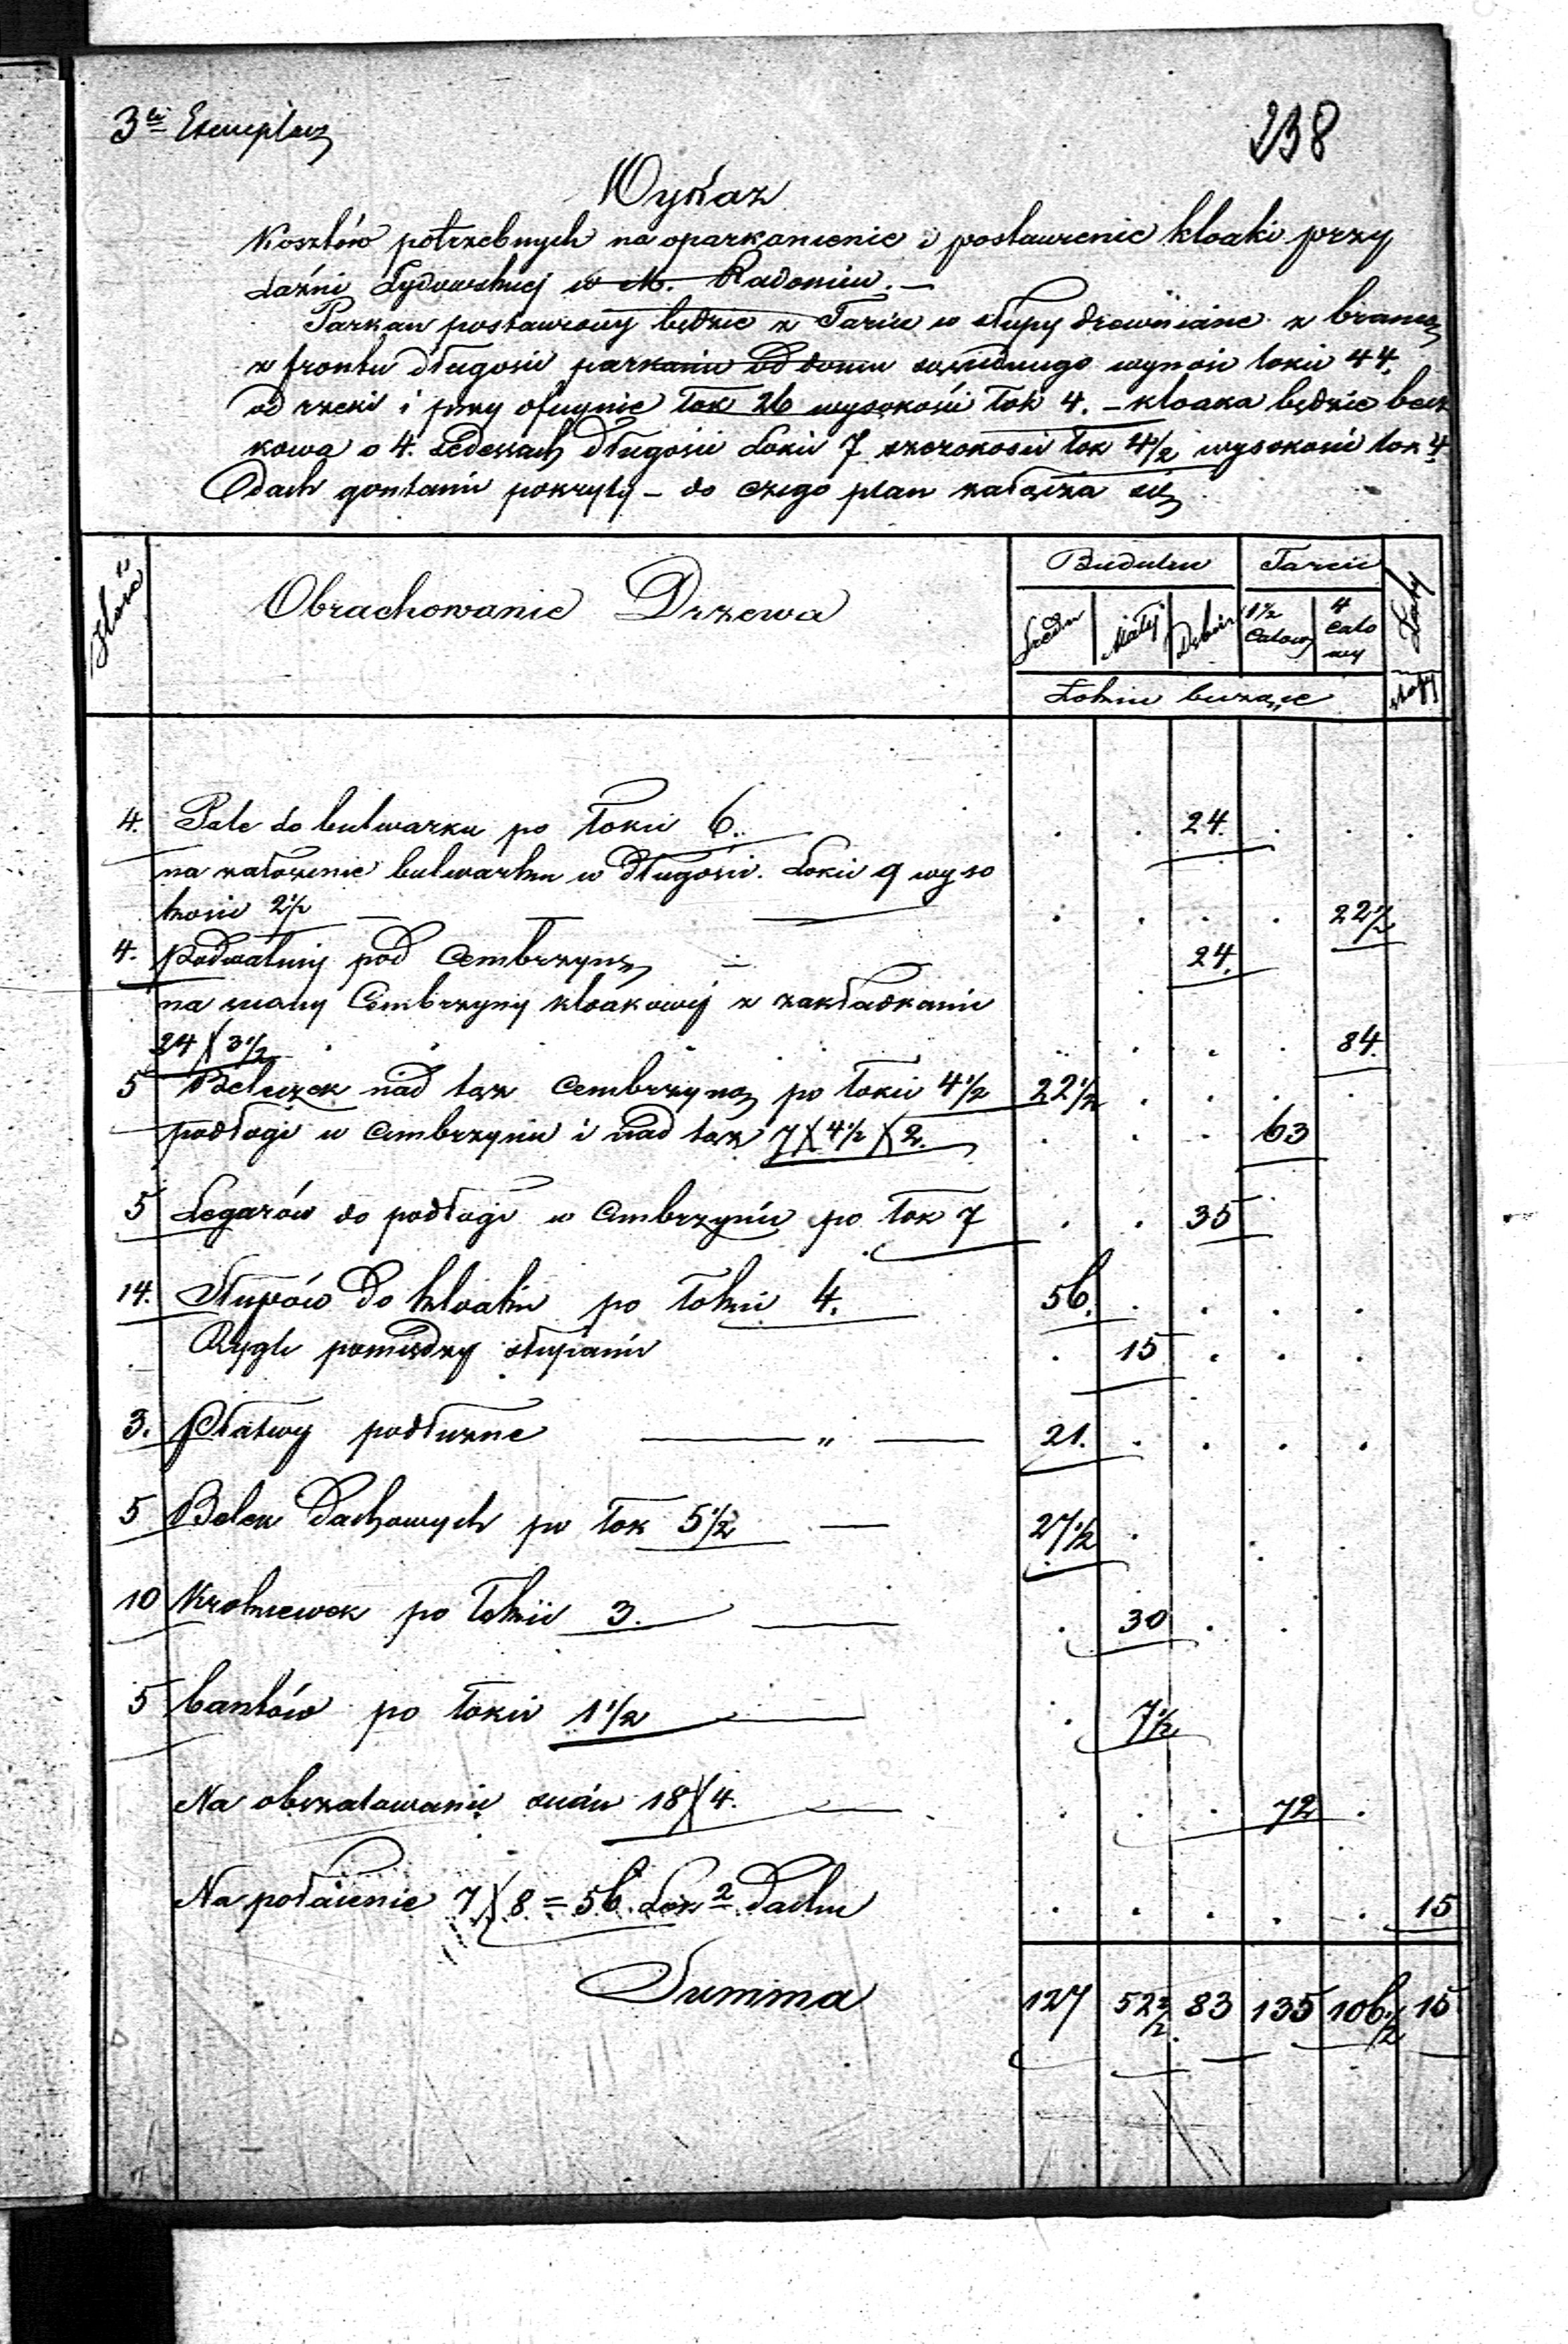 3ci Exemplarz
238
Wykaz
Kosztów potrzebnych na oparkanienie i postawienie kloaki przy
Łaźni Żydowskiej w M. Radomiu. —
Parkan postawiony będzie z Tarcic w słupy drewniane z bramą
z frontu długości parkanu od domu sąsiedniego wynosi łokci 44.
od rzeki i przy oficynie łok 26 wysokości łok 4. — kloaka będzie becz
kowa o 4. Sedesach długości Łokci 7 szerokości łok 4 1/2 wysokości łok 4.
Dach gontami pokryty — do czego plan załącza się
Ilość
Obrachowanie Drzewa
Budulcu
Tarcic
Łaty
Średni
Mały
Dębow
1 1/2 Calow
4 calo wy
Łokcie bieżące
sztuk
4. Pale do bulwarku po łokci 6. 24.
na założenie bulwarku w długości. Łokci 9 wyso
kości 2 1/2 — — 22 1/2
4. Podwaliny pod Cembrzynę — 24.
na ściany Cembrzyny kloakowej z zakładkami
24 X 3 1/2 84.
5 Beleczek nad tąż Cembrzyną po łokci 4 1/2 22 1/2
podłogi w Cembrzynie i nad tąż 7 X 4 1/2 X 2. 63
5 Legarów do podłogi w Cembrzynie po łok 7 35
14. Słupów do kloaki po łokci 4. 56.
Rygle pomiędzy słupami 15
3. Płatwy podłużne — " — 21.
5 Belek Dachowych po łok 5 1/2 — 27 1/2
10 Krokiewek po łokci 3. — 30
5 bantów po łokci 1 1/2 — 7 1/2
Na obszalowanie ścian 18 X 4. — 72
Na połacenie 7 X 8 = 56. Łok 2 Dachu 15
Summa 127 52 1/2 83 135 106 1/2 15